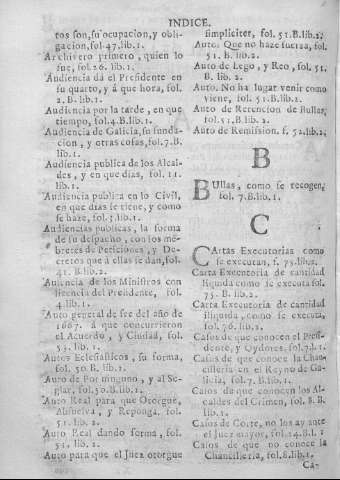 INDICE.
tos son, su ocupacion, y obli-
gacion, fol. 47. lib. 1.
Archivero primero, quien lo
fue, fol. 26. lib. 1.
Audiencia dà el Presidente en
su quarto, y à que hora, fol.
2. B. lib. 1.
Audiencia por la tarde, en que
tiempo, fol. 4. B. lib. 1.
Audiencia de Galicia, su funda-
cion, y otras cosas, fol. 7. B.
lib. 1.
Audiencia publica de los Alcal-
des, y en que dias, fol. 11.
lib. 1.
Audiencia publica en lo Civil,
en que dias se tiene, y como
se haze, fol. 5. lib. 1.
Audiencias publicas, la forma
de su despacho, con los mé-
bretes de Peticiones, y De-
cretos que à ellas se dan, fol.
41. B. lib. 2.
Audiencia de los Ministros con
licencia del Presidente, fol.
4. lib. 1.
Auto general de fee del año de
1667. à que concurrieron
el Acuerdo, y Ciudad, fol.
53. lib. 1.
Autos Eclesiasticos, su forma,
fol. 50. B. lib. 1.
Auto de Por ninguno, y al Se-
glar, fol. 50. B. lib. 1.
Auto Real para que Otorgue,
Absuelva, y Reponga, fol.
51. lib. 2.
Auto Real dando forma, fol.
51. lib. 2.
Auto para que el Juez otorgue
simpliciter, fol. 51. B. lib. 2.
Auto. Que no haze fuerza, fol.
51. B. lib. 2.
Auto de Lego, y Reo, fol. 51.
B. lib. 2.
Auto. No ha lugar venir como
viene, fol. 51. B. lib. 2.
Auto de Retencion de Bullas,
fol. 51. B. lib. 2.
Auto de Remission. f. 52. lib. 2.
B
BUllas, como se recogen,
fol. 7. B. lib. 1.
C
CArtas Executorias como
se executan, f. 75. lib. 2.
Carta Executoria de cantidad
liquida como se executa fol.
75. B. lib. 2.
Carta Executoria de cantidad
iliquida, como se executa,
fol. 76. lib. 2.
Casos de que conocen el Presi-
dente, y Oydores, fol. 7. l. 1.
Casos de que conoce la Chan-
cilleria en el Reyno de Ga-
licia, fol. 7. B. lib. 1.
Casos de que conocen los Al-
caldes del Crimen, fol. 8. B.
lib. 1.
Casos de Corte, no los ay ante
el Juez mayor, fol. 14. B. l. 1
Casos de que no conoce la
Chancilleria, fol. 8. lib. 1.
Ca-